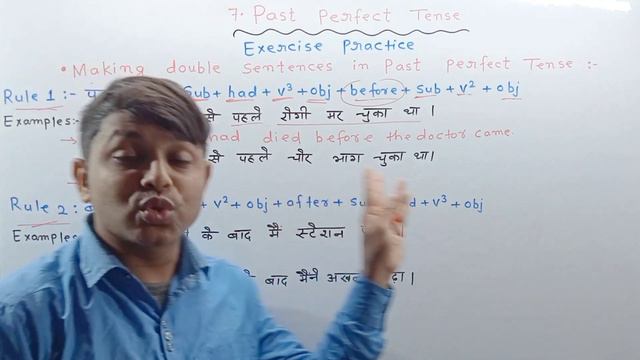 7. Past Perfect Tense
Exercise Practice
• Making double Sentences in Past Perfect Tense :-
Rule 1 :- Sub + had + v³ + obj + before + sub + v² + obj
Examples:- से पहले रोगी मर चुका था |
→ had died before the doctor came.
से पहले चोर भाग चुका था|
Rule 2: + v² + obj + after + + v³ + obj
Examples के बाद मैं स्टेशन
बाद मैंने |